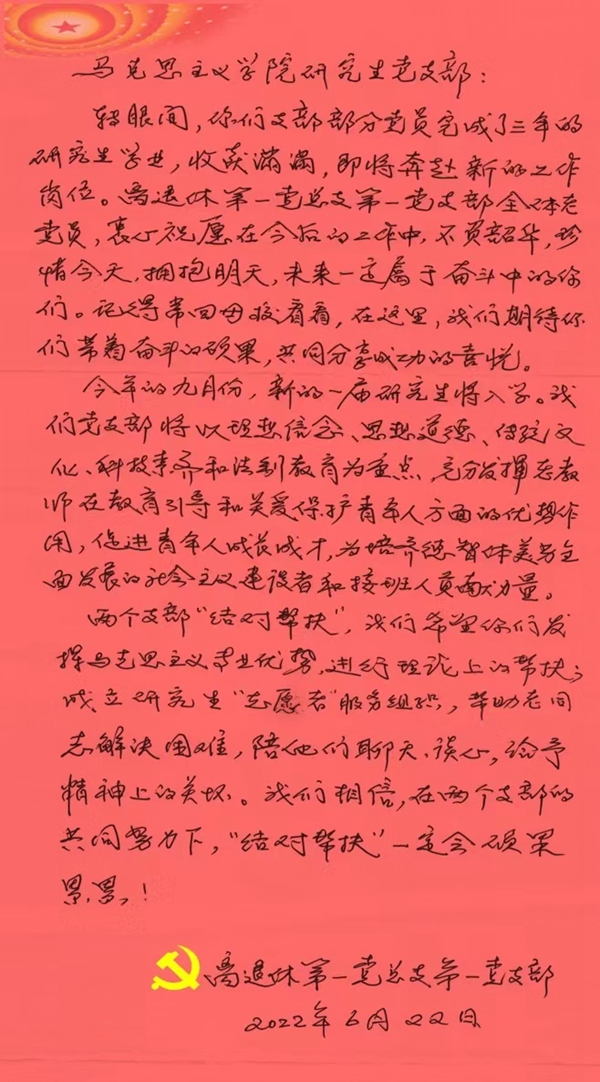 马克思主义学院研究生党支部：
转眼间，你们支部部分党员完成了三年的
研究生学业，收获满满，即将奔赴新的工作
岗位。离退休第一党总支第一党支部全体老
党员，衷心祝愿在今后的工作中，不负韶华，珍
惜今天，拥抱明天，未来一定属于奋斗中的你
们。记得常回母校看看，在这里，我们期待你
们带着奋斗的硕果，共同分享成功的喜悦。
今年的九月份，新的一届研究生将入学。我
们党支部将以理想信念、思想道德、传统文
化、科技素养和法制教育为重点，充分发挥老教
师在教育引导和关爱保护青年人方面的优势作
用，促进青年人成长成才，为培养德智体美劳全
面发展的社会主义建设者和接班人员献力量。
两个支部“结对帮扶”，我们希望你们发
挥马克思主义专业优势，进行理论上的帮扶；
成立研究生“志愿者”服务组织，帮助老同
志解决困难，陪他们聊天、谈心，给予
精神上的关怀。我们相信，在两个支部的
共同努力下，“结对帮扶”一定会硕果
累累！
离退休第一党总支第一党支部
2022年6月22日